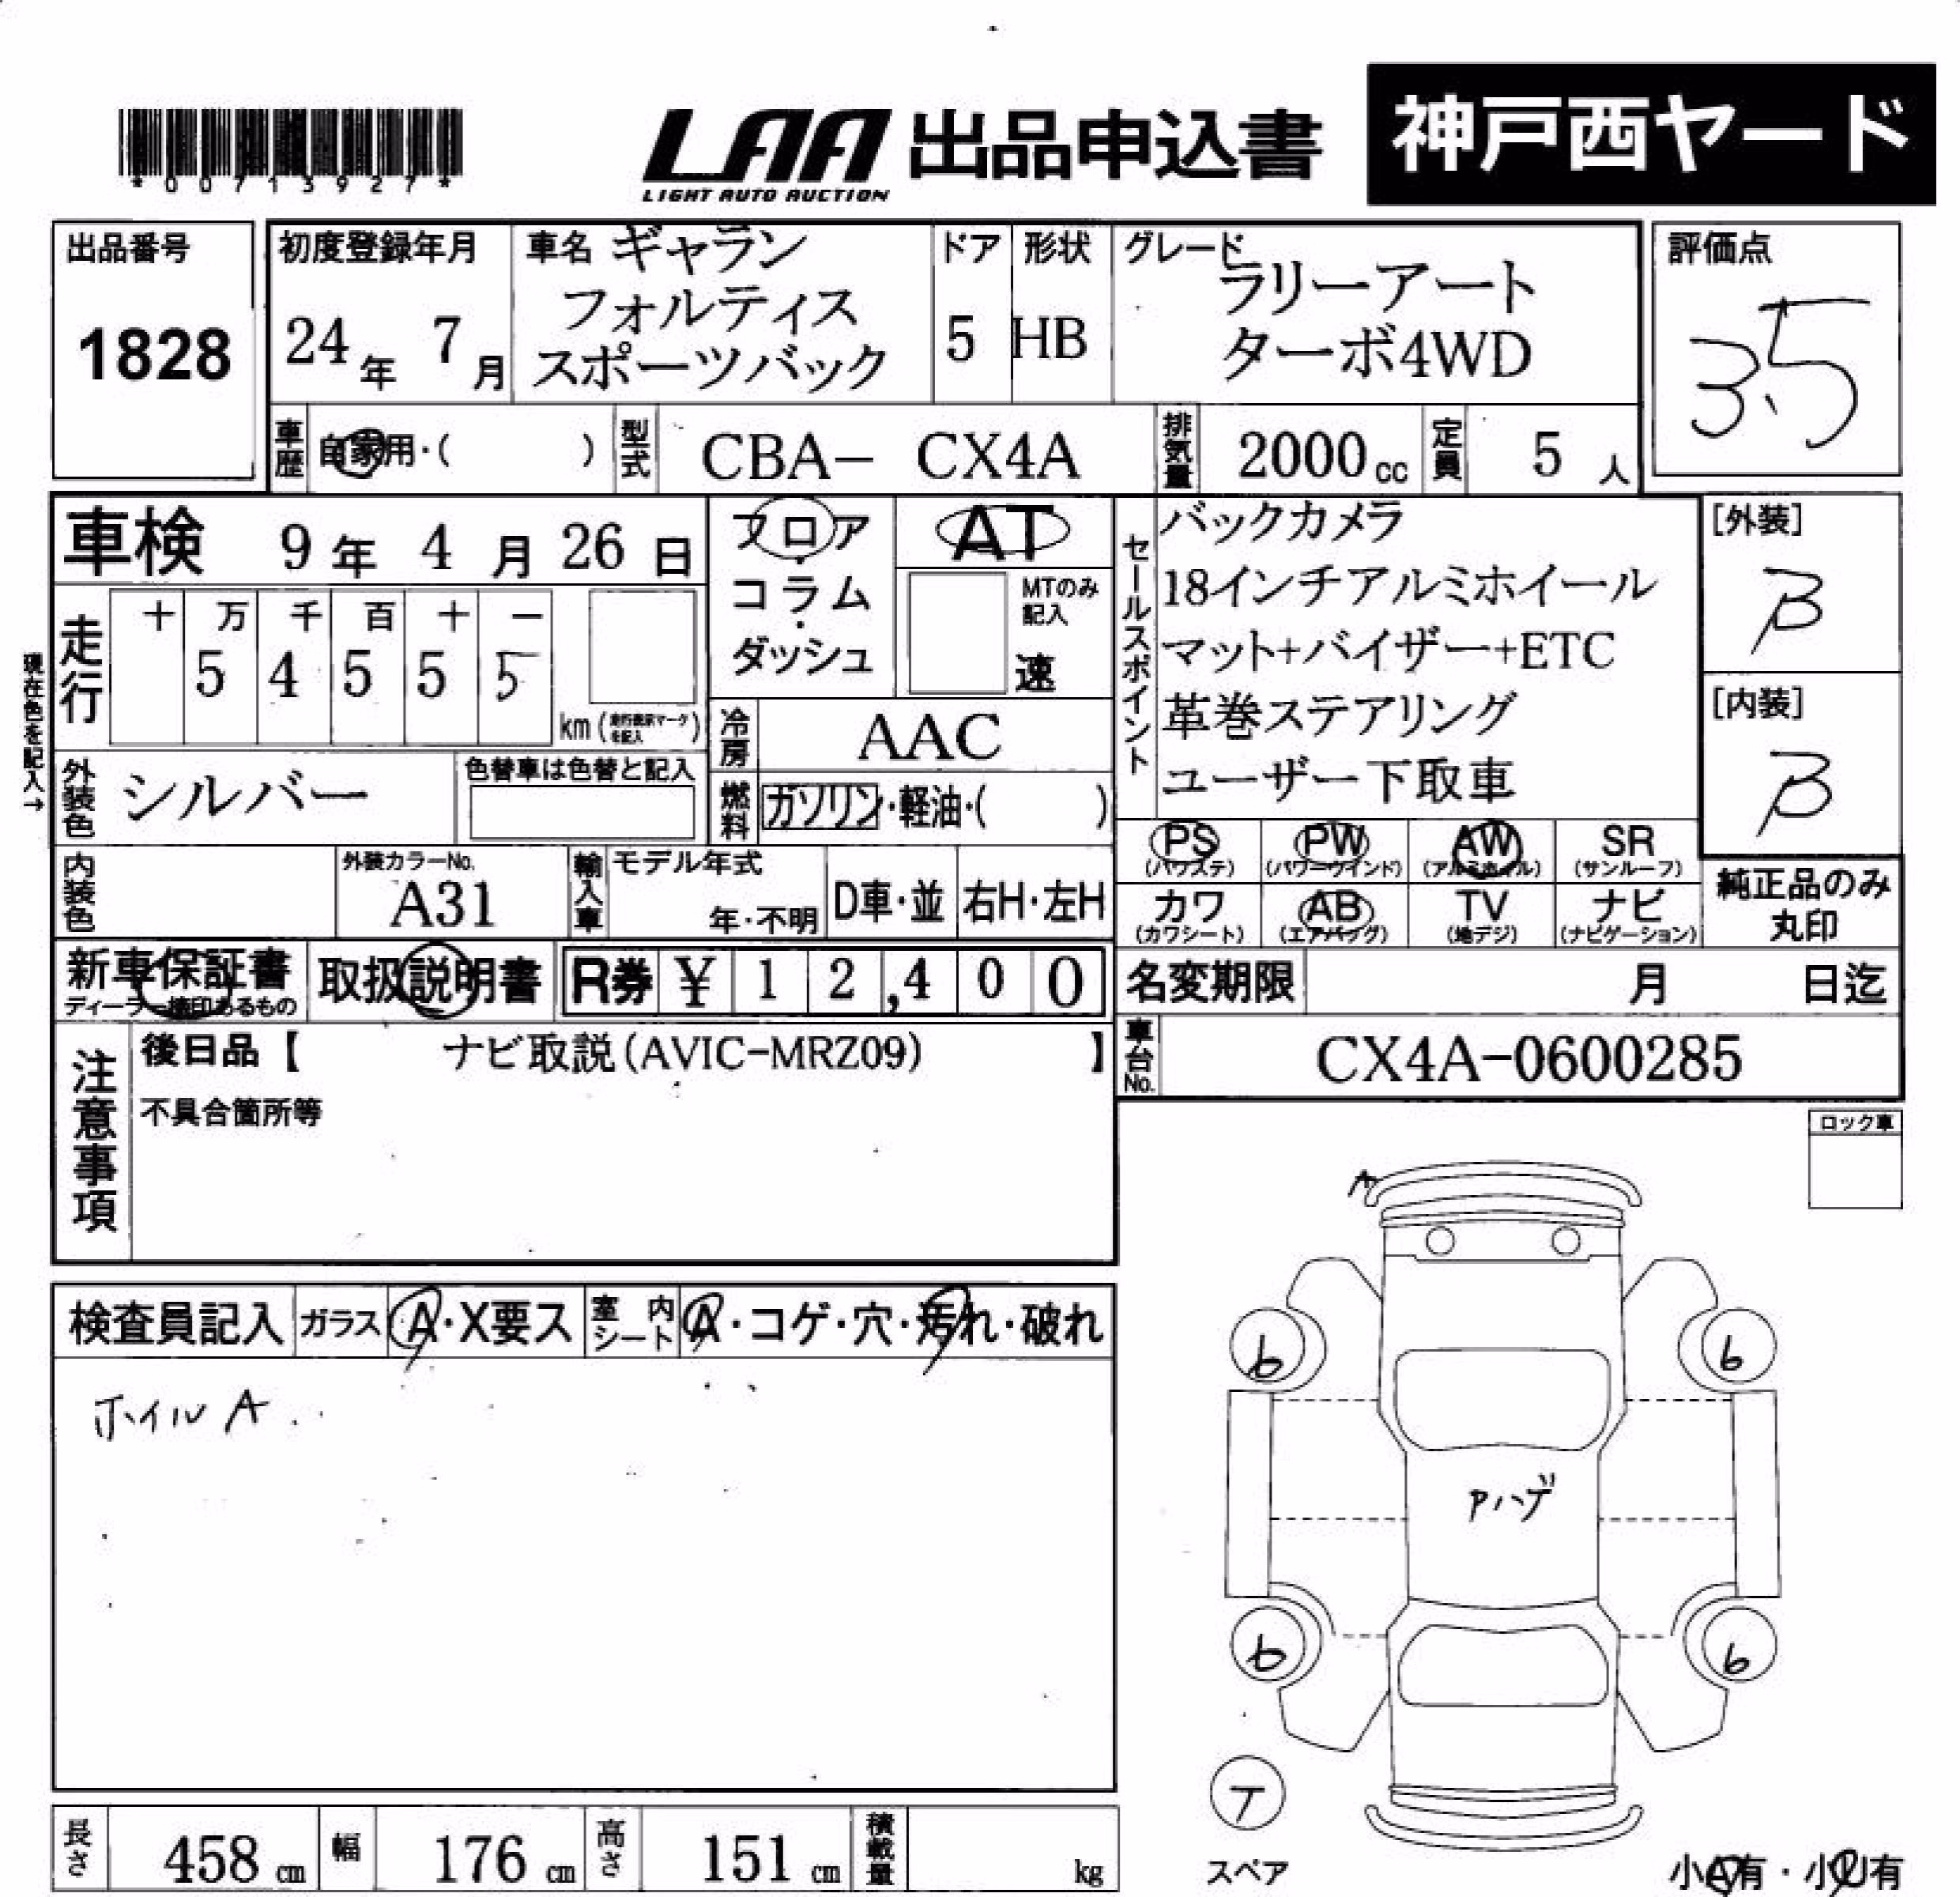 *00713927*
LAA 出品申込書
LIGHT AUTO AUCTION
神戸西ヤード
出品番号
1828
初度登録年月
24年 7月
車名 ギャラン
フォルティス
スポーツバック
ドア
5
形状
HB
グレード
ラリーアート
ターボ4WD
評価点
3.5
車歴 自家用・( )
型式 CBA- CX4A
排気量 2000cc
定員 5人
車検 9年 4月 26日
現在色を記入→
走行
十 万 千 百 十 一
5 4 5 5 5
km (走行機箱マーク を記入)
フロア
・
コラム
・
ダッシュ
AT
MTのみ
記入
速
冷房 AAC
燃料 ガソリン・軽油・( )
セールスポイント
バックカメラ
18インチアルミホイール
マット+バイザー+ETC
革巻ステアリング
ユーザー下取車
[外装]
B
[内装]
B
外装色 シルバー
色替車は色替と記入
内装色
外装カラーNo.
A31
輸入車
モデル年式
年・不明
D車・並
右H・左H
PS
(パワステ)
PW
(パワーウインド)
AW
(アルミホイル)
SR
(サンルーフ)
カワ
(カワシート)
AB
(エアバッグ)
TV
(地デジ)
ナビ
(ナビゲーション)
純正品のみ
丸印
新車保証書
ディーラー捺印あるもの
取扱説明書
R券 ¥12,400
名変期限 月 日迄
車台No. CX4A-0600285
注意事項
後日品【 ナビ取説(AVIC-MRZ09) 】
不具合箇所等
ロック車
検査員記入
ガラス A・X要ス
室内シート A・コゲ・穴・汚れ・破れ
ホイルA
A
6 6
Pハゲ
6 6
T
スペア
小A有・小U有
長さ 458cm
幅 176cm
高さ 151cm
積載量 kg